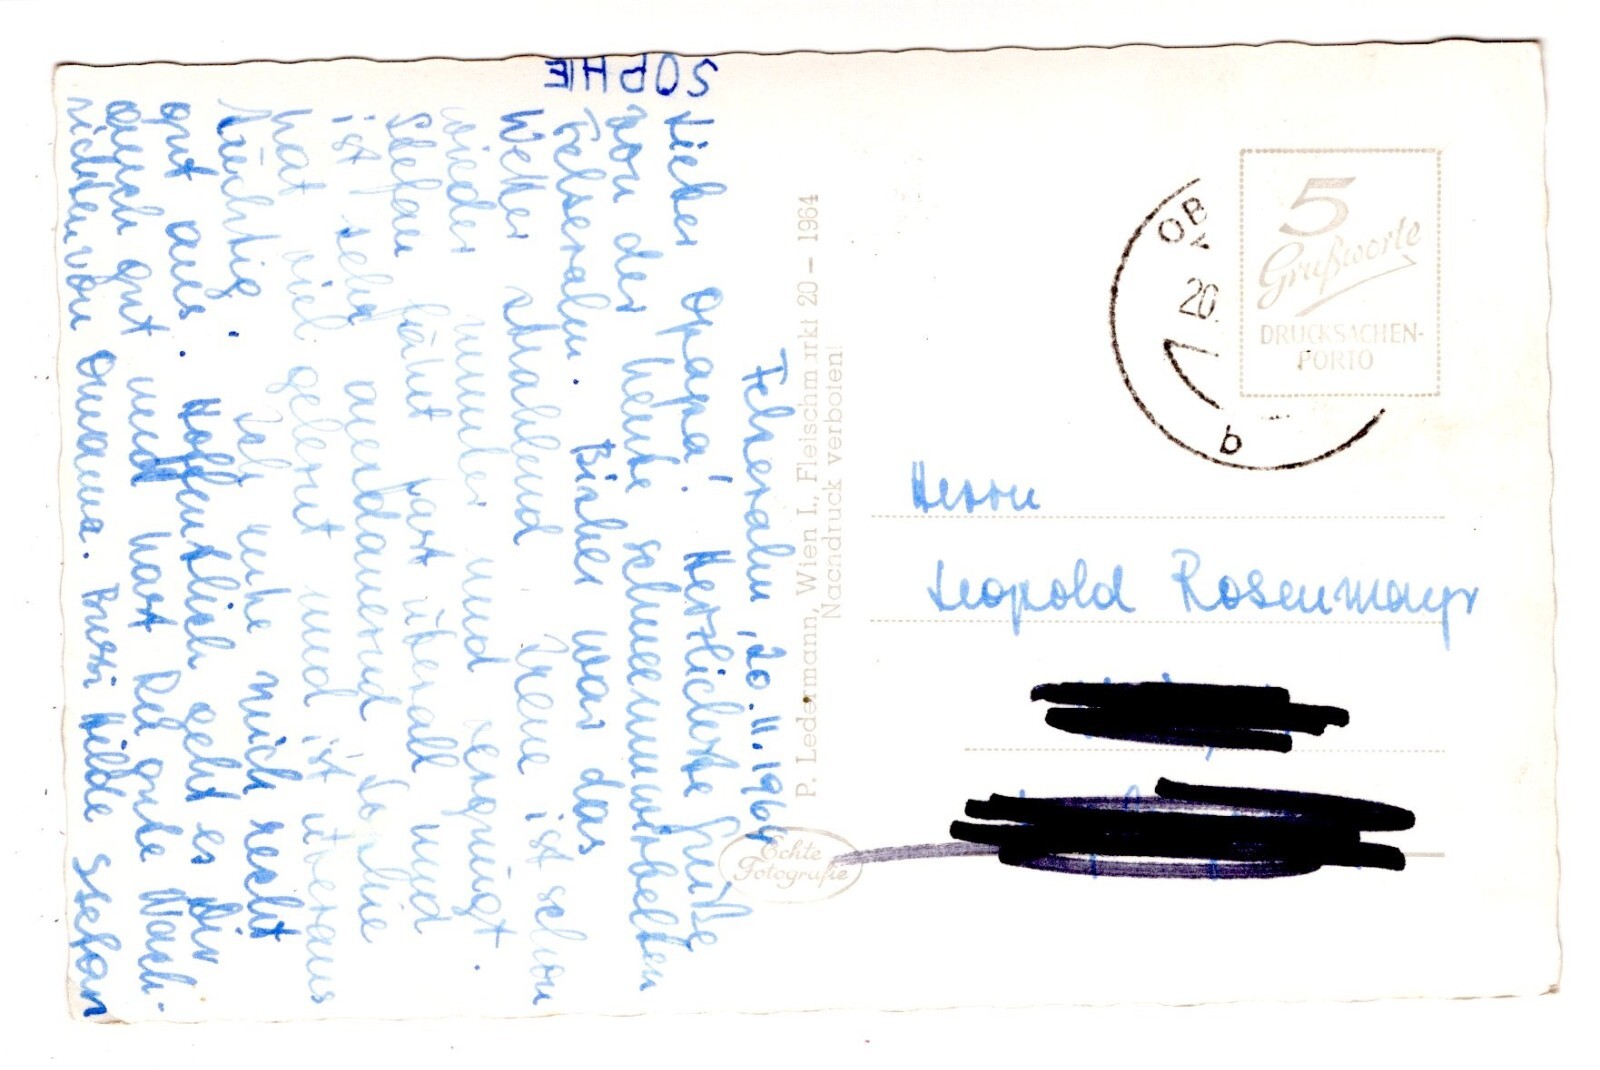 Felseralm, 20.11.1964
Lieber Opapa! Herzlichste Grüße
von der heute schneeumwirbelten
Felseralm. Bisher war das
Wetter strahlend. Irene ist schon
wieder munter und vergnügt.
Stefan fährt fast überall und
ist sehr ausdauernd. Sophie
hat viel gelernt und ist überaus
tüchtig. Ich ruhe mich recht
gut aus. Hoffentlich geht es Dir
auch gut und hast Du gute Nach-
richten von Omama. Bussi Hilde Stefan
SOPHIE
P. Ledermann, Wien I., Fleischmarkt 20 – 1964
Nachdruck verboten!
Echte
Fotografie
OB
20.
b
5
Grußworte
DRUCKSACHEN-
PORTO
Herrn
Leopold Rosenmayr